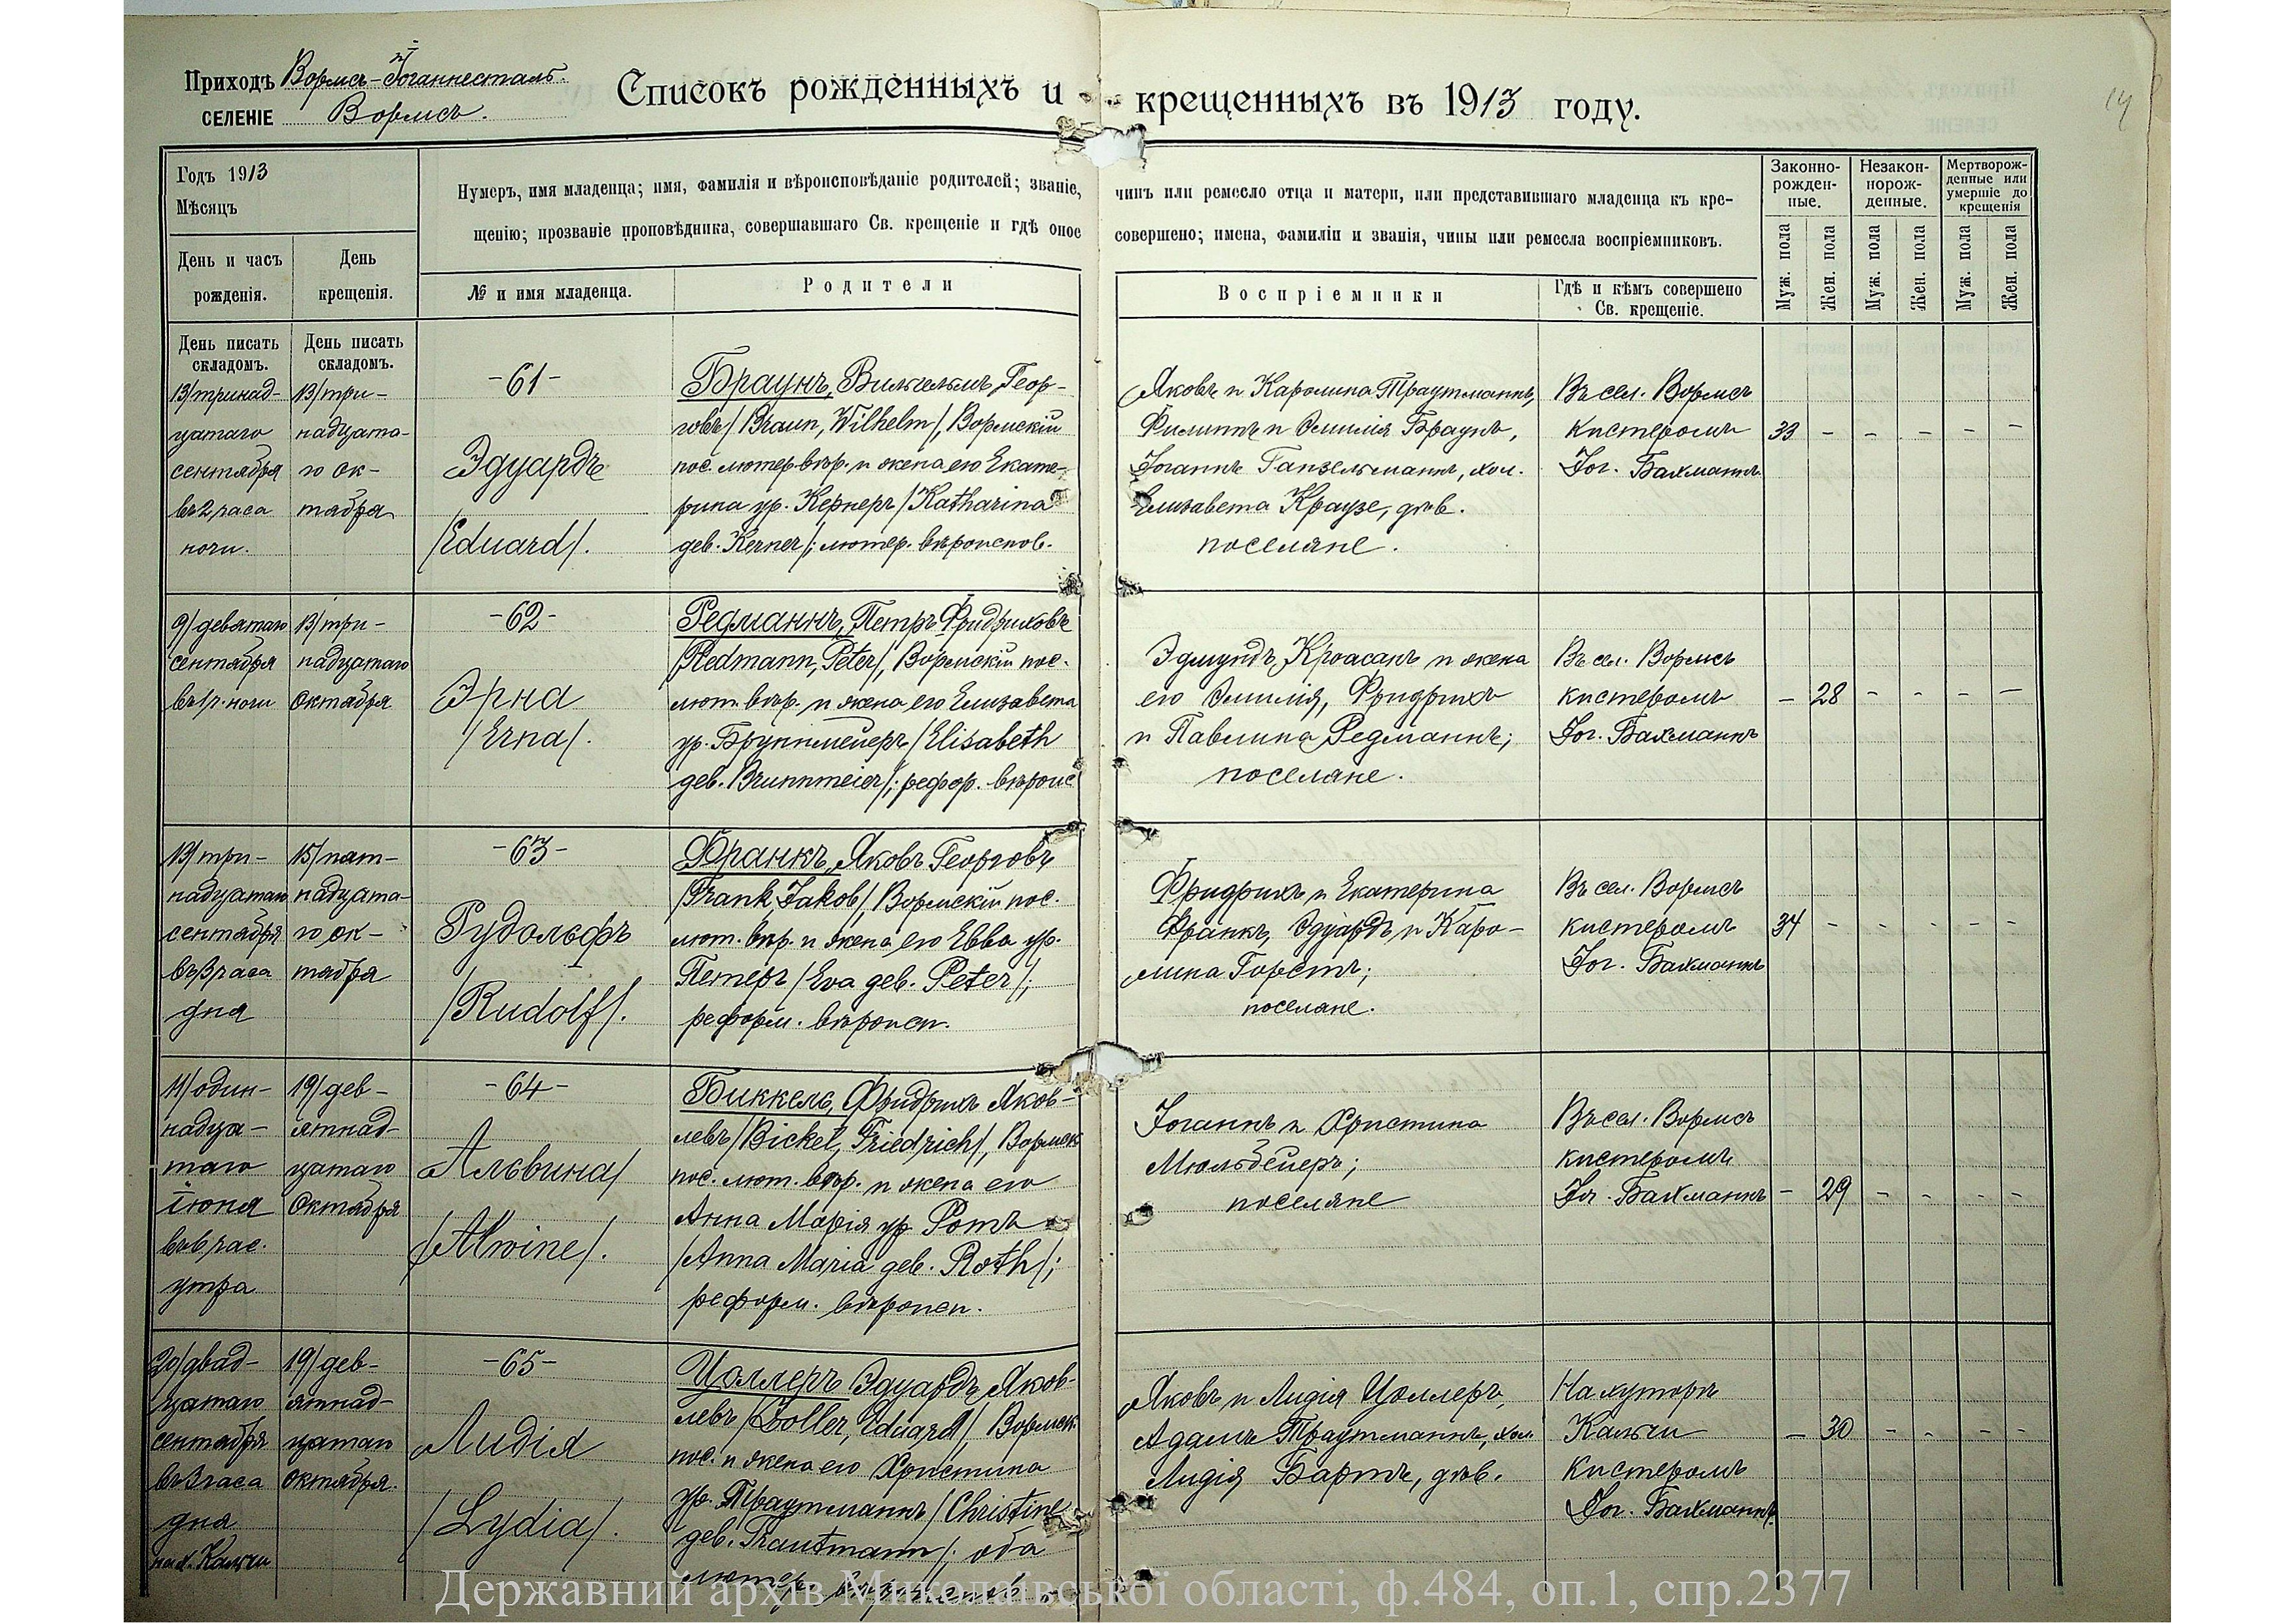 Приходъ Вормсъ-Іоганнесталь.
СЕЛЕНІЕ Вормсъ.
Списокъ рожденныхъ и крещенныхъ въ 1913 году.
14
Годъ 1913
Мѣсяцъ
День и часъ рожденія.
День крещенія.
Нумеръ, имя младенца; имя, фамилія и вѣроисповѣданіе родителей; званіе, чинъ или ремесло отца и матери, или представившаго младенца къ кре-
щенію; прозваніе проповѣдника, совершавшаго Св. крещеніе и гдѣ оное совершено; имена, фамиліи и званія, чины или ремесла воспріемниковъ.
№ и имя младенца.
Родители
Воспріемники
Гдѣ и кѣмъ совершено
Св. крещеніе.
Законно-
рожден-
ные.
Незакон-
норож-
денные.
Мертворож-
денные или
умершіе до
крещенія
Муж. пола
Жен. пола
Муж. пола
Жен. пола
Муж. пола
Жен. пола
День писать
складомъ.
День писать
складомъ.
13/тринад-
цатаго
сентября
въ 2 часа
ночи.
13/три-
надцата-
го ок-
тября
-61-
Эдуардъ
/Eduard/.
Браунъ, Вильгельмъ Геор-
говъ /Braun, Wilhelm/, Вормскій
пос. лютер. вѣр. и жена его Екате-
рина ур. Кернеръ /Katharina
geb. Kerner/; лютер. вѣроиспов.
Яковъ и Каролина Траутманнъ,
Филиппъ и Эмилія Браунъ,
Іоганнъ Ганзельманнъ, хол.
Елизавета Краузе, дѣв.
поселяне.
Въ сел. Вормсъ
кистеромъ
Іог. Бахманнъ
33 - - - - -
9/девятаго
сентября
въ 1 ч. ночи
13/три-
надцатаго
октября
-62-
Эрна
/Erna/.
Редманнъ, Петръ Фридриховъ
/Redmann, Peter/, Вормскій пос.
лют. вѣр. и жена его Елизавета
ур. Бруннмейеръ /Elisabeth
geb. Brunnmeier/; рефор. вѣроис
Эдмундъ Кроасанъ и жена
его Эмилія, Фридрихъ
и Павлина Редманнъ;
поселяне.
Въ сел. Вормсъ
кистеромъ
Іог. Бахманнъ
- 28 - - - -
13/три-
надцатаго
сентября
въ 3 часа
дня
15/пят-
надцата-
го ок-
тября
-63-
Рудольфъ
/Rudolf/.
Франкъ, Яковъ Георговъ
/Frank, Jakob/, Вормскій пос.
лют. вѣр. и жена его Евва ур.
Петеръ /Eva geb. Peter/;
реформ. вѣроисп.
Фридрихъ и Екатерина
Франкъ, Эдуардъ и Каро-
лина Горстъ;
поселяне.
Въ сел. Вормсъ
кистеромъ
Іог. Бахманнъ
34 - - - - -
11/один-
надца-
таго
іюня
въ 6 час.
утра
19/дев-
ятнад-
цатаго
октября
-64-
Альвина/
/Alwine/.
Биккель, Фридрихъ Яков-
левъ /Bickel, Friedrich/, Вормск
пос. лют. вѣр. и жена его
Анна Марія ур. Ротъ
/Anna Maria geb. Roth/;
реформ. вѣроисп.
Іоганнъ и Христина
Мюльбейеръ;
поселяне
Въ сел. Вормсъ
кистеромъ
Іог. Бахманнъ
- 29 - - - -
20/двад-
цатаго
сентября
въ 3 часа
дня
на х. Кальчи
19/дев-
ятнад-
цатаго
октября.
-65-
Лидія
/Lydia/.
Цоллеръ Эдуардъ Яков-
левъ /Zoller, Eduard/, Вормск
пос. и жена его Христина
ур. Траутманнъ /Christine
geb. Trautmann/; оба
лютер. вѣроиспов.
Яковъ и Лидія Цоллеръ,
Адамъ Траутманнъ, хол.
Лидія Бартъ, дѣв.
На хуторѣ
Кальчи
кистеромъ
Іог. Бахманнъ.
- 30 - - - -
Державний архів Миколаївської області, ф.484, оп.1, спр.2377